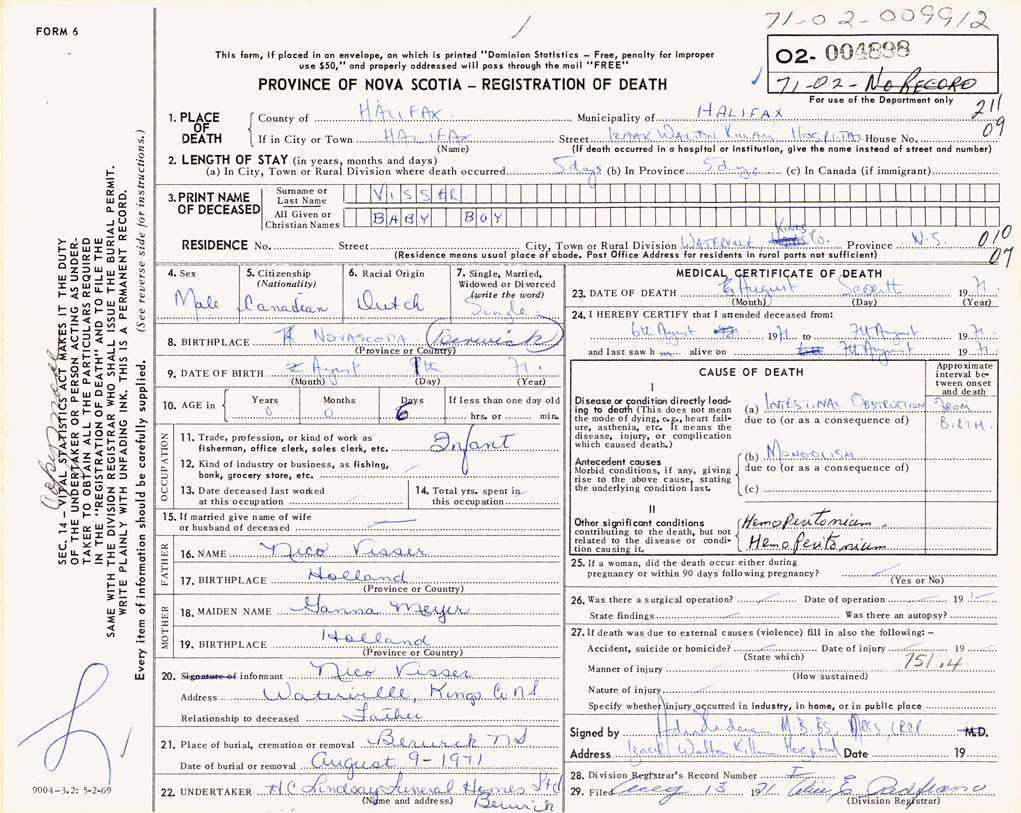 FORM 6
71-02-009912
02-004898
71-02-No RECORD
For use of the Department only
This form, if placed in an envelope, on which is printed "Dominion Statistics – Free, penalty for improper
use $50," and properly addressed will pass through the mail "FREE"
PROVINCE OF NOVA SCOTIA – REGISTRATION OF DEATH
1. PLACE OF DEATH
County of HALIFAX Municipality of HALIFAX 211
If in City or Town HALIFAX Street IZAAK WALTON KILLAM HOSPITAL House No. 09
(Name) (If death occurred in a hospital or institution, give the name instead of street and number)
2. LENGTH OF STAY (in years, months and days)
(a) In City, Town or Rural Division where death occurred 5 days (b) In Province 5 days (c) In Canada (if immigrant)
3. PRINT NAME OF DECEASED
Surname or Last Name VISSER
All Given or Christian Names BABY BOY
RESIDENCE No. Street City, Town or Rural Division WATERVILLE KINGS Co. Province N.S. 010
(Residence means usual place of abode. Post Office Address for residents in rural parts not sufficient) 07
4. Sex
Male
5. Citizenship
(Nationality)
Canadian
6. Racial Origin
Dutch
7. Single, Married,
Widowed or Divorced
(write the word)
Single
8. BIRTHPLACE NOVASCOTIA (Berwick)
(Province or Country)
9. DATE OF BIRTH August 71
(Month) (Day) (Year)
10. AGE in
Years 0
Months 0
Days 6
If less than one day old
hrs. or min.
OCCUPATION
11. Trade, profession, or kind of work as
fisherman, office clerk, sales clerk, etc. Infant
12. Kind of industry or business, as fishing,
bank, grocery store, etc.
13. Date deceased last worked
at this occupation
14. Total yrs. spent in
this occupation
15. If married give name of wife
or husband of deceased
FATHER
16. NAME Nico Visser
17. BIRTHPLACE Holland
(Province or Country)
MOTHER
18. MAIDEN NAME Hanna Meyer
19. BIRTHPLACE Holland
(Province or Country)
20. Signature of informant Nico Visser
Address Waterville, Kings Co NS
Relationship to deceased Father
21. Place of burial, cremation or removal Berwick NS
Date of burial or removal August 9-1971
22. UNDERTAKER H.C. Lindsay Funeral Homes Ltd
(Name and address) Berwick
MEDICAL CERTIFICATE OF DEATH
23. DATE OF DEATH August 1971
(Month) (Day) (Year)
24. I HEREBY CERTIFY that I attended deceased from:
6th August 1971 to 7th August 1971
and last saw h alive on 7th August 1971
CAUSE OF DEATH
Approximate
interval be-
tween onset
and death
I
Disease or condition directly lead-
ing to death (This does not mean
the mode of dying, e.g., heart fail-
ure, asthenia, etc. It means the
disease, injury, or complication
which caused death.)
(a) INTESTINAL OBSTRUCTION FROM BIRTH.
due to (or as a consequence of)
Antecedent causes
Morbid conditions, if any, giving
rise to the above cause, stating
the underlying condition last.
(b) MONGOLISM
due to (or as a consequence of)
(c)
II
Other significant conditions
contributing to the death, but not
related to the disease or condi-
tion causing it.
Hemoperitonium.
Hemoperitonium
25. If a woman, did the death occur either during
pregnancy or within 90 days following pregnancy?
(Yes or No)
26. Was there a surgical operation? Date of operation 19
State findings Was there an autopsy?
27. If death was due to external causes (violence) fill in also the following: –
Accident, suicide or homicide? Date of injury 19
(State which) 751.4
Manner of injury
(How sustained)
Nature of injury
Specify whether injury occurred in industry, in home, or in public place
Signed by M.B.BS, MRCS, LRCP M.D.
Address Izaak Walton Killam Hospital Date 19
28. Division Registrar's Record Number
29. Filed Aug 13 1971
(Division Registrar)
SEC. 14 – VITAL STATISTICS ACT MAKES IT THE DUTY
OF THE UNDERTAKER OR PERSON ACTING AS UNDER-
TAKER TO OBTAIN ALL THE PARTICULARS REQUIRED
IN THE "REGISTRATION OF DEATH" AND TO FILE THE
SAME WITH THE DIVISION REGISTRAR WHO SHALL ISSUE THE BURIAL PERMIT.
WRITE PLAINLY WITH UNFADING INK. THIS IS A PERMANENT RECORD.
Every item of information should be carefully supplied. (See reverse side for instructions.)
9004-3.2: 5-2-69